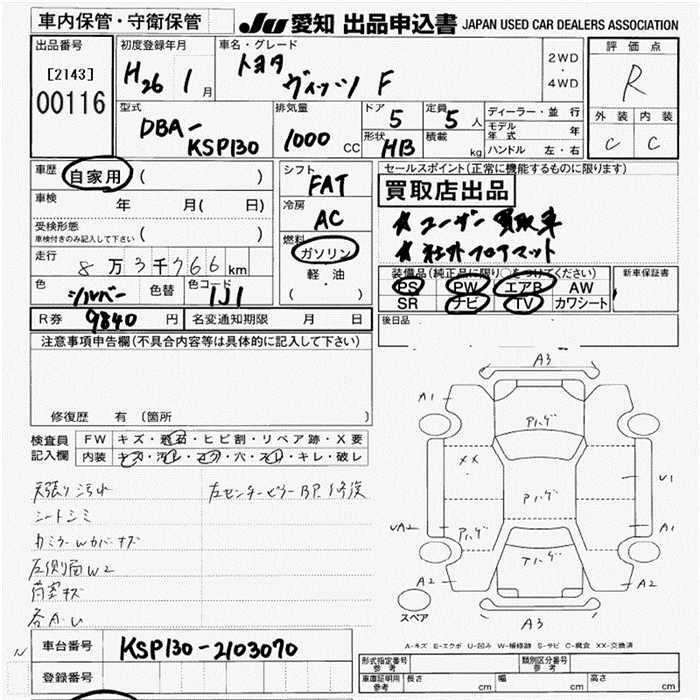 車内保管・守衛保管 JU 愛知 出品申込書 JAPAN USED CAR DEALERS ASSOCIATION
出品番号
[2143]
00116
初度登録年月
H26 1月
車名・グレード
トヨタ
ヴィッツ F
2WD
・
4WD
評価点
R
外装 内装
C C
型式
DBA-
KSP130
排気量
1000 CC
ドア
5
定員
5人
形状
HB
積載
kg
ディーラー・並行
モデル年式 年
ハンドル 左・右
車歴
自家用 ( )
車検
年 月( 日)
受検形態
車検付きのみ記入して下さい ( )
走行
8万3千766km
色
シルバー
色替
色コード
1J1
シフト
FAT
冷房
AC
燃料
ガソリン
軽・油
( )
セールスポイント(正常に機能するものに限ります)
買取店出品
★ユーザー買取車
★社外フロアマット
装備品(純正品に限り○をつけてください)
PS PW エアB AW
SR ナビ TV カワシート
新車保証書
後日品
R券 9840 円
名変通知期限 月 日
注意事項申告欄(不具合内容等は具体的に記入して下さい)
修復歴 有 (箇所
検査員
記入欄
FW キズ・飛石・ヒビ割・リペア跡・X要
内装 キズ・汚レ・コゲ・穴・スレ・キレ・破レ
天張り汚れ
シートシミ
左センターピラーBP.1修復
カミラーWカバーキズ
左側面W2
荷室キズ
A3
A1
アハゲ
XX
Aハゲ
U1
UA2
Aハゲ
A1
アハゲ
A2
A2
A3
スペア
車台番号 KSP130-2103070
登録番号
A-キズ E-エクボ U-凹み W-補修跡 S-サビ C-腐食 XX-交換済
形式指定番号
参考
類別区分番号
参考
車庫証明用
参考
長さ cm
幅 cm
高さ cm